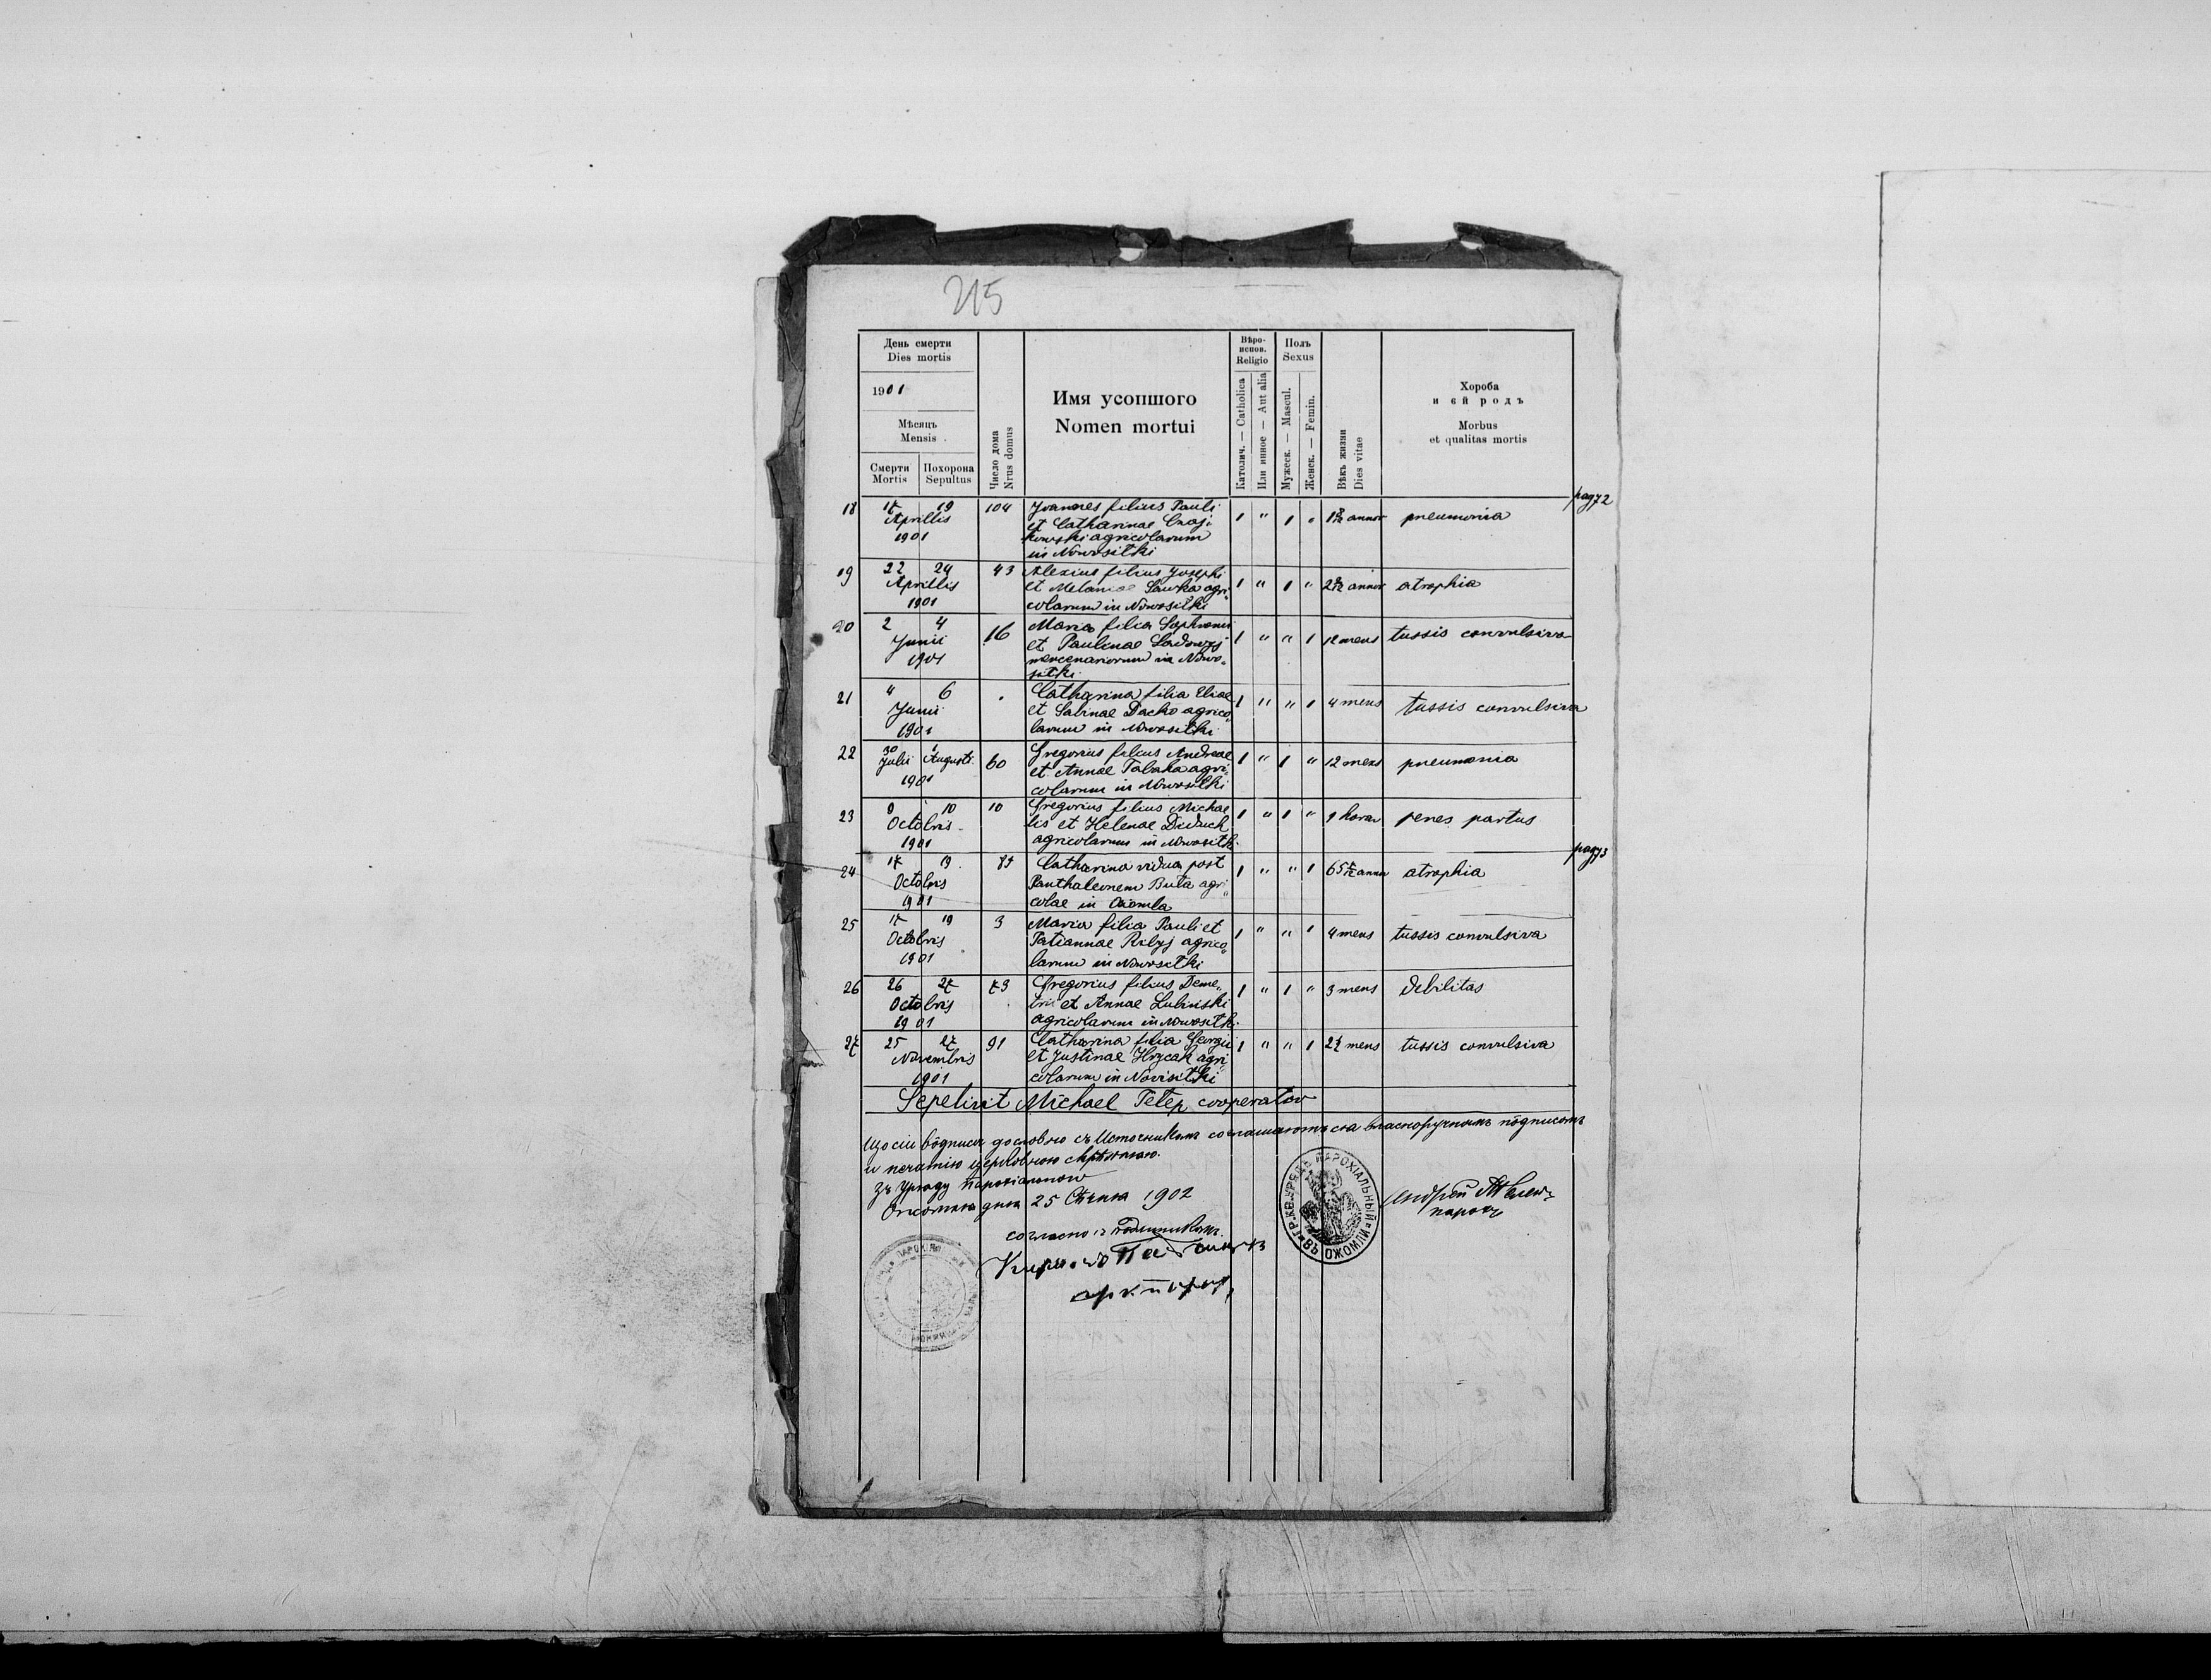 215
День смерти
Dies mortis
1901
Мѣсяцъ
Mensis
Смерти
Mortis
Похорона
Sepultus
Число дома
Nrus domus
Имя усопшого
Nomen mortui
Вѣро-
испов.
Religio
Католич. — Catholica
Или инное — Aut alia
Полъ
Sexus
Мужеск. — Mascul.
Женск. — Femin.
Вѣкъ жизни
Dies vitae
Хороба
и єй родъ
Morbus
et qualitas mortis
pag 72
18 17 19 104 Joannes filius Pauli
Aprillis et Catharinae 1 " 1 " annor pneumonia
1901 agricolarum
in Nowositki
19 22 24 43 Alexius filius Josephi
Aprillis et Melaniae Sawka agri- 1 " 1 " annor atrophia
1901 colarum in Nowositki
20 2 4 16 Maria filia Sophronii
Junii et Paulinae 1 " " 1 12 mens tussis convulsiva
1901 mercenariorum in Nowo-
sitki
21 4 6 Catharina filia Eliae
Junii et Sabinae Dacko agrico- 1 " " 1 4 mens tussis convulsiva
1901 larum in Nowositki
22 30 1 60 Gregorius filius Andreae
Julii Augusti et Annae Tabaka agri- 1 " 1 " 12 mens pneumonia
1901 colarum in Nowositki
23 9 10 10 Gregorius filius Michae
Octobris lis et Helenae Diduch 1 " 1 " 1 horae penes partus
1901 agricolarum in Nowositk.
pag 73
24 17 19 Catharina vidua post
Octobris Panthaleonem Buta agri- 1 " " 1 65 annor atrophia
1901 colae in Ożomla
25 17 19 3 Maria filia Pauli et
Octobris Patiannae Ribyj agrico- 1 " " 1 4 mens tussis convulsiva
1901 larum in Nowositki
26 26 27 73 Gregorius filius Deme-
Octobris trii et Annae Lubinski 1 " 1 " 3 mens debilitas
1901 agricolarum in Nowositk.
27 25 27 91 Catharina filia Georgii
Novembris et Justinae Hrycak agri- 1 " " 1 2½ mens tussis convulsiva
1901 colarum in Novisitki
Sepelivit Michael Telep cooperator
дословно съ власноручнымъ подписомъ
и печатію церковною
Зъ Уряду парохіального
дня 25 Сѣчня 1902
Андрей
парохъ
согласно съ подлинникомъ
ГР. КА. УРЯДЪ ПАРОХІАЛЬНЫЙ ВЪ ОЖОМЛИ